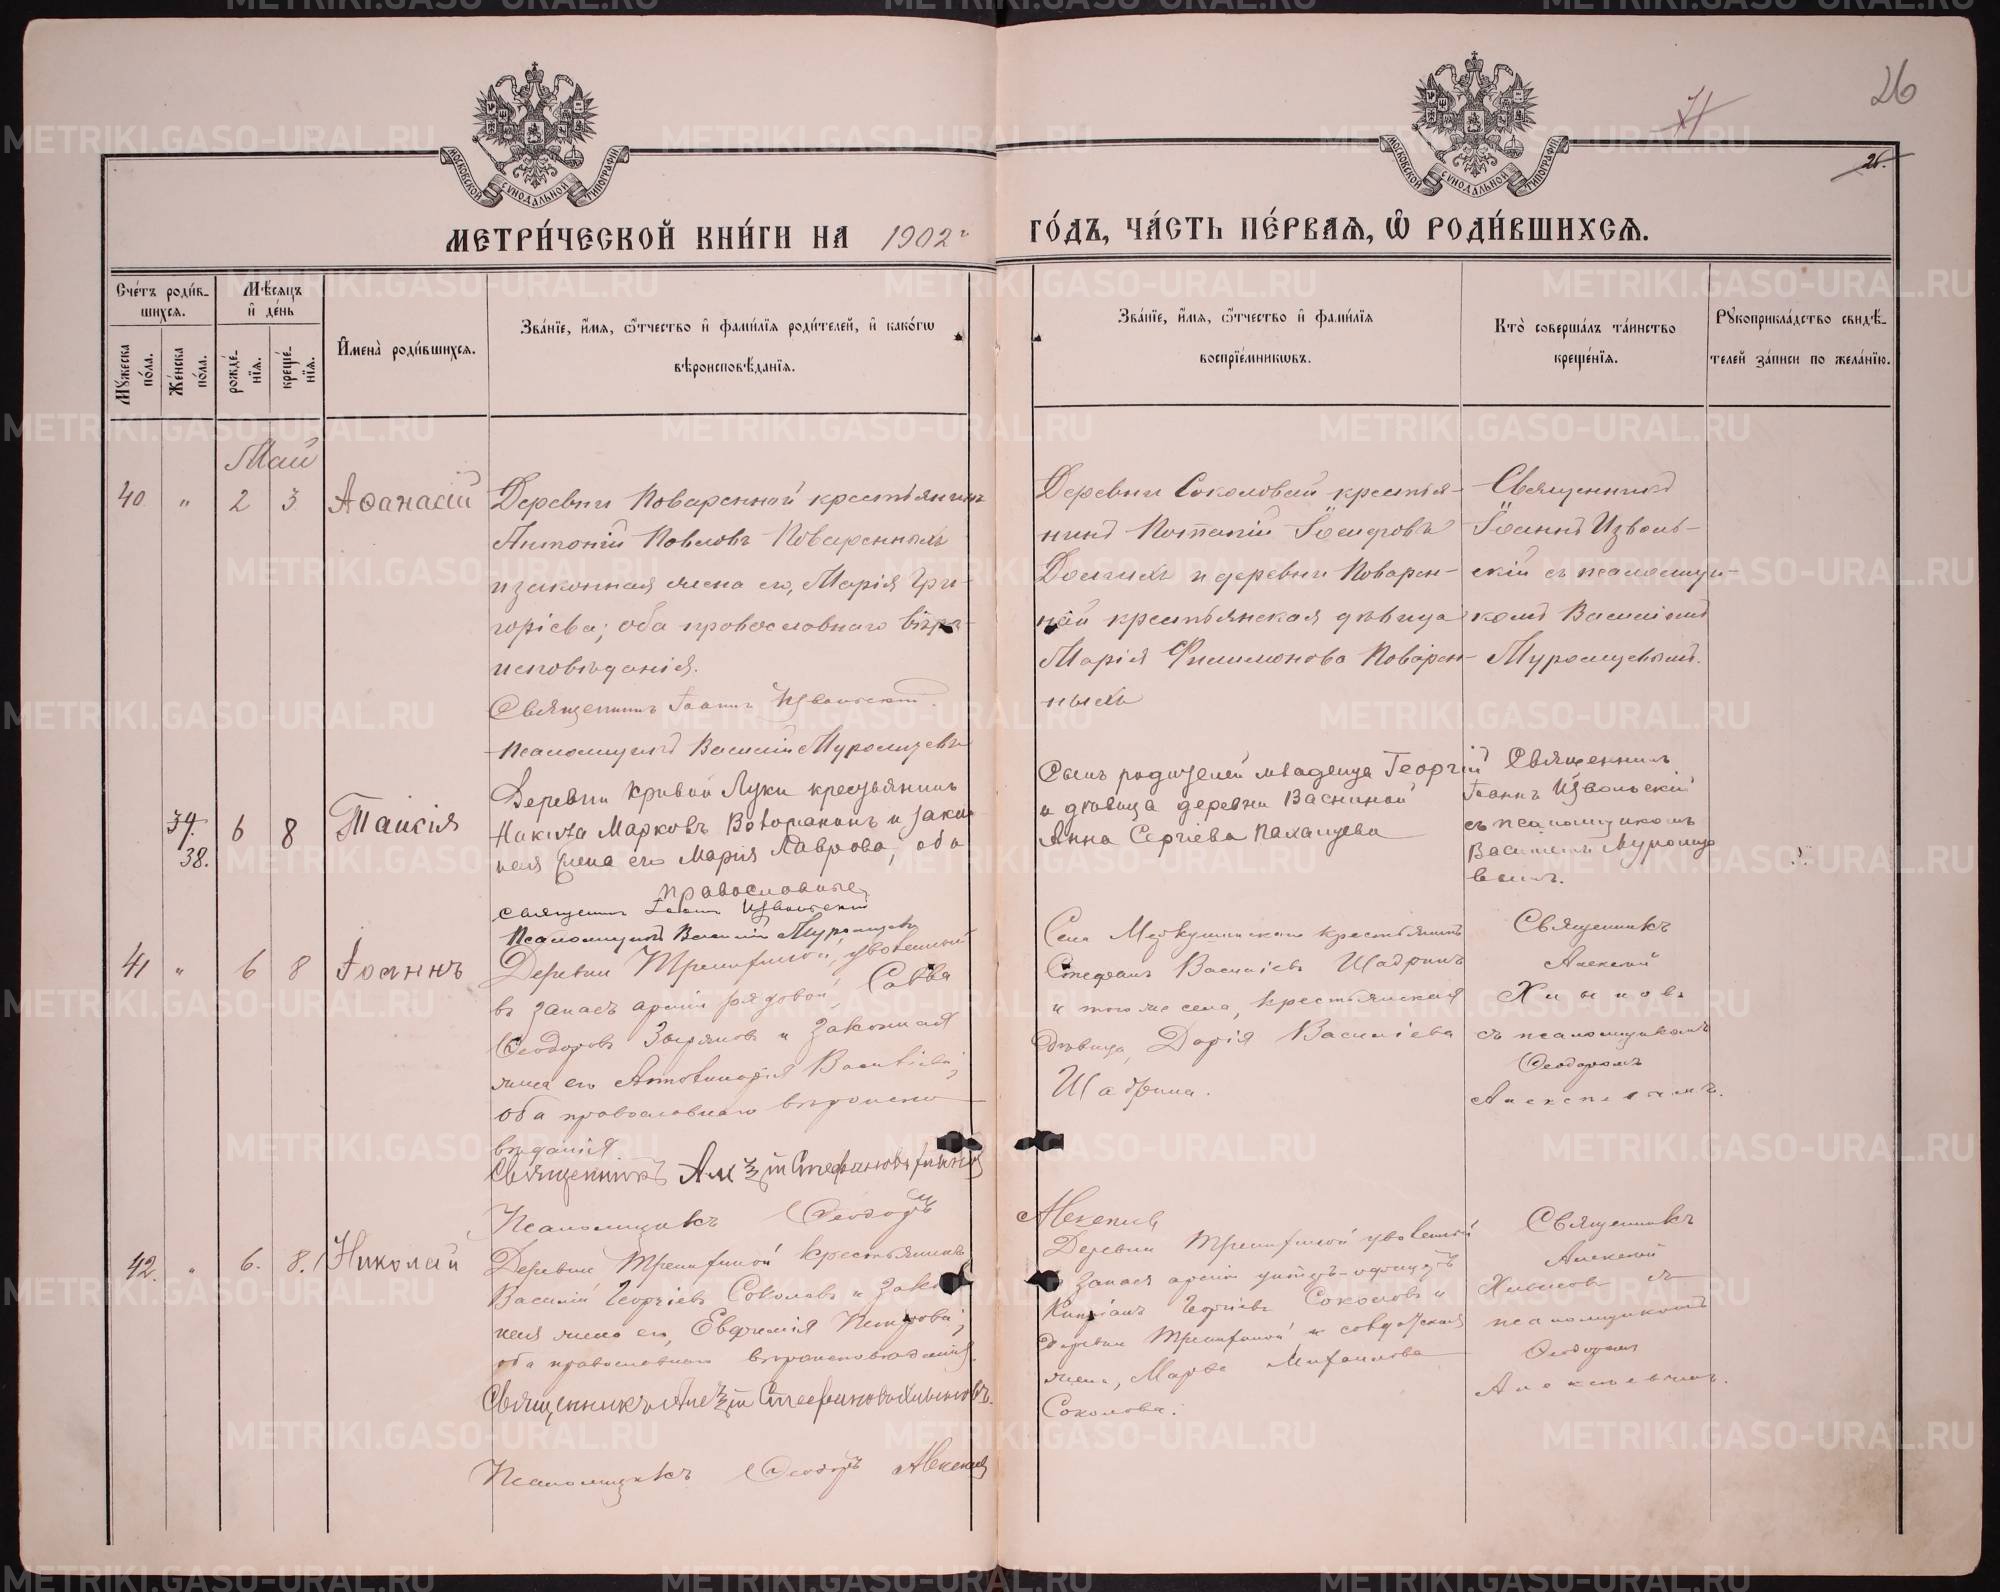 26
26.
МОСКОВСКОЙ СѴНОДАЛЬНОЙ ТИПОГРАФІИ
МОСКОВСКОЙ СѴНОДАЛЬНОЙ ТИПОГРАФІИ
МЕТРИ́ЧЕСКОЙ КНИ́ГИ НА 1902 г
ГО́ДЪ, ЧА́СТЬ ПЕ́РВАѦ, Ѽ РОДИ́ВШИХСѦ.
Сче́тъ роди́в-
шихсѧ.
Мꙋ́жеска по́ла.
Же́нска по́ла.
Мѣ́сѧцъ
и҆ де́нь
рожде́-
нїѧ.
креще́-
нїѧ.
И҆мена̀ роди́вшихсѧ.
Зва́нїе, и҆́мѧ, ѻ҆́тчество и҆ фами́лїѧ роди́телей, и҆ како́гѡ
вѣроисповѣ́данїѧ.
Зва́нїе, и҆́мѧ, ѻ҆́тчество и҆ фами́лїѧ
воспрїе́мникѡвъ.
Кто̀ соверша́лъ та́инство
креще́нїѧ.
Рꙋкоприкла́дство свидѣ́-
телей за́писи по жела́нїю.
Май
40 " 2 3 Аѳанасій
Деревни Поваренной крестьянинъ
Антоній Павловъ Поваренныхъ
и законная жена его, Марія Гри-
горіева; оба православнаго вѣро-
исповѣданія.
Священникъ Іоаннъ Извольскій.
Псаломщикъ Василій Муромцевъ
Деревни Соколовой крестья-
нинъ Потапій Іосифовъ
Долгихъ и деревни Поварен-
ной крестьянская дѣвица
Марія Филимонова Поварен-
ныхъ
Священникъ
Іоаннъ Изволь-
скій съ псаломщи-
комъ Василіемъ
Муромцевымъ.
37. 38. 6 8 Таисія
Деревни Кривой Луки крестьянинъ
Никита Марковъ и закон-
ная жена его Марія Лаврова; оба
православные
Священникъ Іоаннъ Извольскій
Псаломщикъ Василій Муромцевъ
Сынъ родителей младенца Георгій
и дѣвица деревни Васниной
Анна Сергіева
Священникъ
Іоаннъ Извольскій
съ псаломщикомъ
Василіемъ Муромце
вымъ.
41 " 6 8 Іоаннъ
Деревни Тремифиной, уволенный
въ запасъ арміи рядовой, Савва
Ѳеодоровъ Зыряновъ и законная
жена его Васильева;
оба православнаго вѣроиспо
вѣданія.
Священникъ Алексій Стефановъ Хлыновъ
Псаломщикъ Ѳеодоръ
Алексѣевъ
Села крестьянинъ
Стефанъ Василіевъ Шадринъ
и того же села, крестьянская
дѣвица, Дарія Василіева
Шадрина.
Священникъ
Алексій
Хлыновъ
съ псаломщикомъ
Ѳеодоромъ
42. " 6. 8. Николай
Деревни Тремифиной крестьянинъ
Василій Георгіевъ Соколовъ и закон
ная жена его, Евфимія Петрова;
оба православнаго вѣроисповѣданія.
Священникъ Алексій Стефановъ Хлыновъ.
Псаломщикъ Ѳеодоръ Алексѣевъ
Деревни Тремифиной уволенный
въ запасъ арміи унтеръ-офицеръ
Кипріанъ Георгіевъ Соколовъ и
деревни Тремифиной солдатская
жена, Марѳа Михаилова
Соколова.
Священникъ
Алексій
Хлыновъ съ
псаломщикомъ
Ѳеодоромъ
METRIKI.GASO-URAL.RU